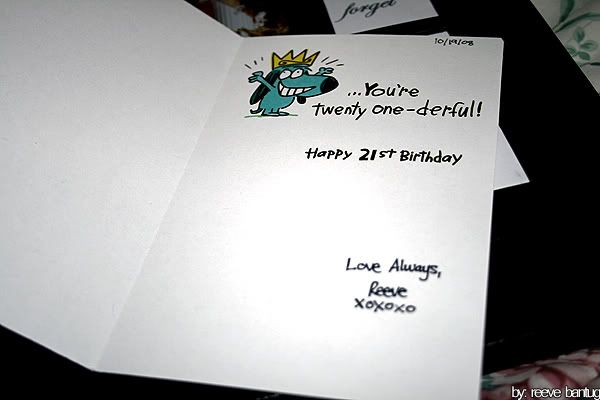 forget
10/19/08
...You're
twenty one-derful!
Happy 21st Birthday
Love Always,
Reeve
xoxoxo
by: reeve bantug